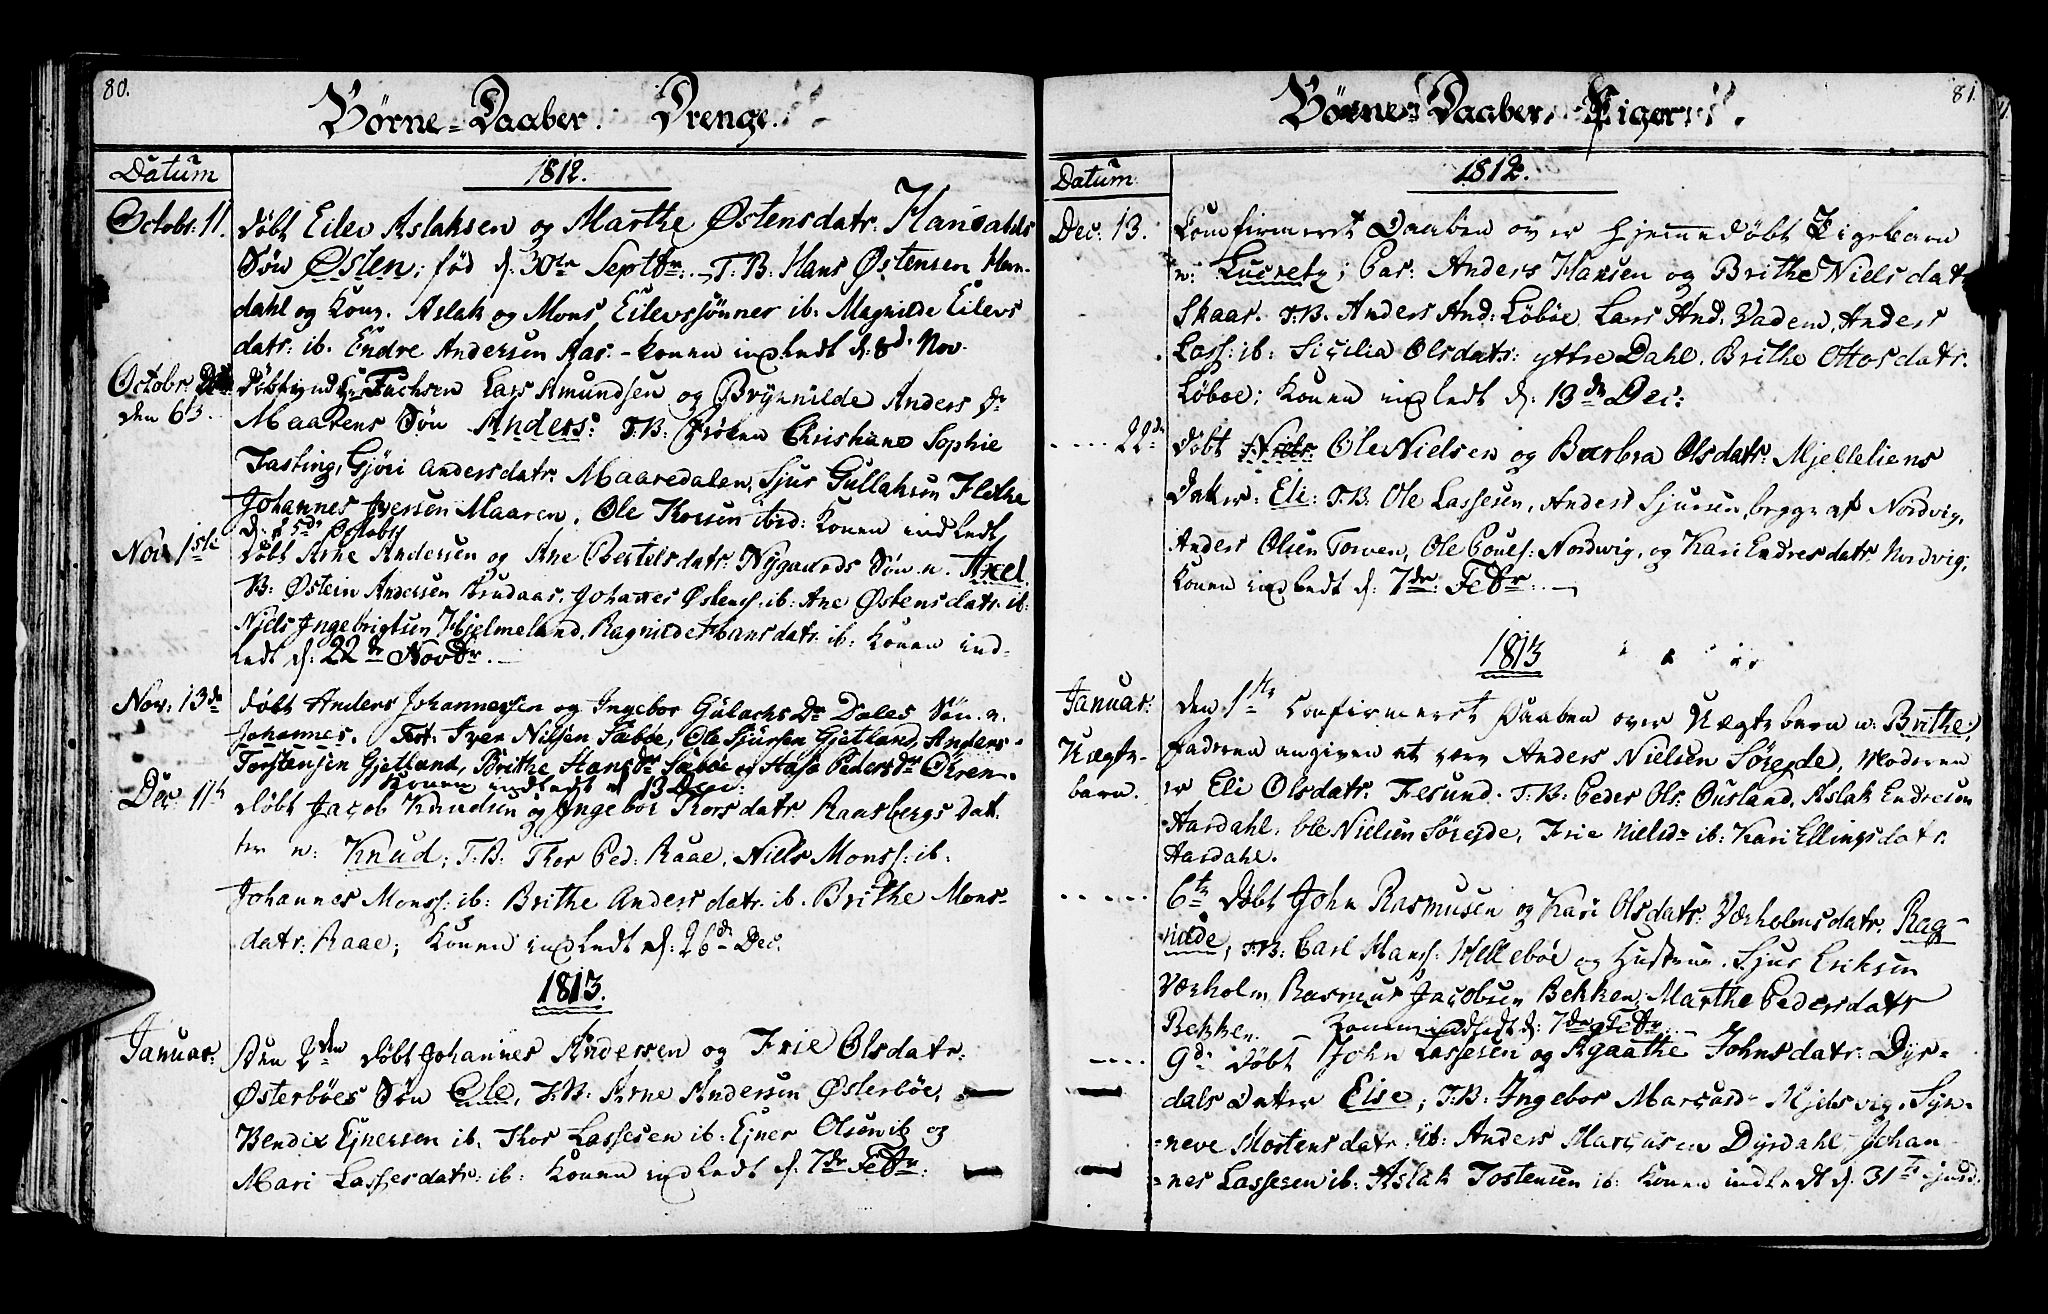 80.
Børne-Daaber. Drenge.
Datum
1812.
Octobr: 11. døbt Eilev Aslaksen og Marthe Østensdatr. Handahls
Søn Østen; fød d: 30te Septbr: T:B: Hans Østensen Han-
dahl og Kone. Aslak og Mons Eilevssønner ib: Magnilde Eilevs
datr: ib. Endre Andersen Aas. - Konen indledt d: 8d Nov.
Octobr:
den 6 døbt Lars Amundsen og Brynnilde Anders Dr
Maarens Søn Anders: T:B: Frøken Christiane Sophie
Fasting, Gjøri Andersdatr: Maaredalen, Sjur Gullaksen Flethe
Johannes Iversen Maaren, Ole Thorsen ibid: Konen indledt
d: Octobr
Nov 1ste døbt Arne Andersen og Ane Bertelsdatr: Nygaards Søn n. Axel
B: Østein Andersen Johannes Østens: ib: Ane Østensdatr: ib:
Niels Ingebrigtsen Hjelmeland, Ragnilde Hansdatr: ib: Konen ind-
ledt d: 22de Novbr. -
Nov: 13de døbt Anders Johannessen og Ingebor Gulachs Dr Dales Søn n.
Johannes. Test. Iver Nilsen Sæbøe, Ole Sjursen Gjetland, Anders
Torstensen Gjetland, Brithe Hansdr Sæbøe og Aasa Pedersdr Øren.
Konen indledt d 13 Dec:
Dec. 11te døbt Jacob Knudsen og Ingebor Thorsdatr: Raasbergs Dat-
ter n: Knud; T:B: Thor Ped: Raae, Niels Monss: ib.
Johannes Monss: ib: Brithe Andersdatr: ib. Brithe Mons-
datr: Raae; Konen indledt d: 26de Dec.
1813.
Januar: Den 2den døbt Johannes Andersen og Frie Olsdatr:
Østerbøes Søn Ole, T:B: Arne Andersen Østerbøe,
Bendix Ejnersen ib. Thor Lassesen ib: Ejner Olsen ib og
Mari Lassesdatr: ib: Konen indledt d: 7de Febr:
81.
Børne-Daaber, Piger.
Datum.
1812.
Dec: 13. Confirmeret Daaben over hjemmedøbt Pigebarn
n: Lucrety; Par: Anders Hansen og Brithe Nielsdatr
Skaar. T:B: Anders And: Løbøe. Lars And: Vadem, Anders
Lass: ib: Sicilia Olsdatr: yttre Dahl. Brithe Ottosdatr.
Løboe; Konen indledt d: 13de Dec:
.... 22de døbt Ole Nielsen og Barbra Olsdatr: Mjelleliens
Dater: Eli: T:B: Ole Lassesen, Anders Sjursen begge af Nordvig,
Anders Olsen Torven, Ole Pouels: Nordwig, og Kari Endresdatr Nordvig,
Konen indledt d: 7de: Febr. -
1813
Januar: den 1ste Confirmeret Daaben over Uægtebarn n: Brithe;
Uægte-
barn.
Faderen angiven at være Anders Nielsen Søreide, Moderen
er Eli Olsdatr: Fesund. T:B: Peder Ols: Ousland, Aslak Endresen
Hardahl. Ole Nielsen Søreide, Frie Nielsdr ib: Kari Ellingsdatr:
Hardahl.
..... 6te Døbt John Rasmusen og Kari Olsdatr: Værholmsdatr. Rag-
nilde, T:B: Carl Hanss: Hellebøe og Hustrue. Sjur Eriksen
Værholm Rasmus Jacobsen Bekken, Marthe Pedersdatr
Bekken. Konen indledt d: 7de Febr.
.... 9de døbt John Lassesen og Agaathe Johnsdatr: Dyr-
dals Dater Else; T:B: Ingebor Marcusdr Mjelsvig, Syn-
neve Mortensdatr: ib: Anders Marcusen Dyrdahl, Johan-
nes Lassesen ib: Aslak Tostensen ib: Konen indledt d: 31te